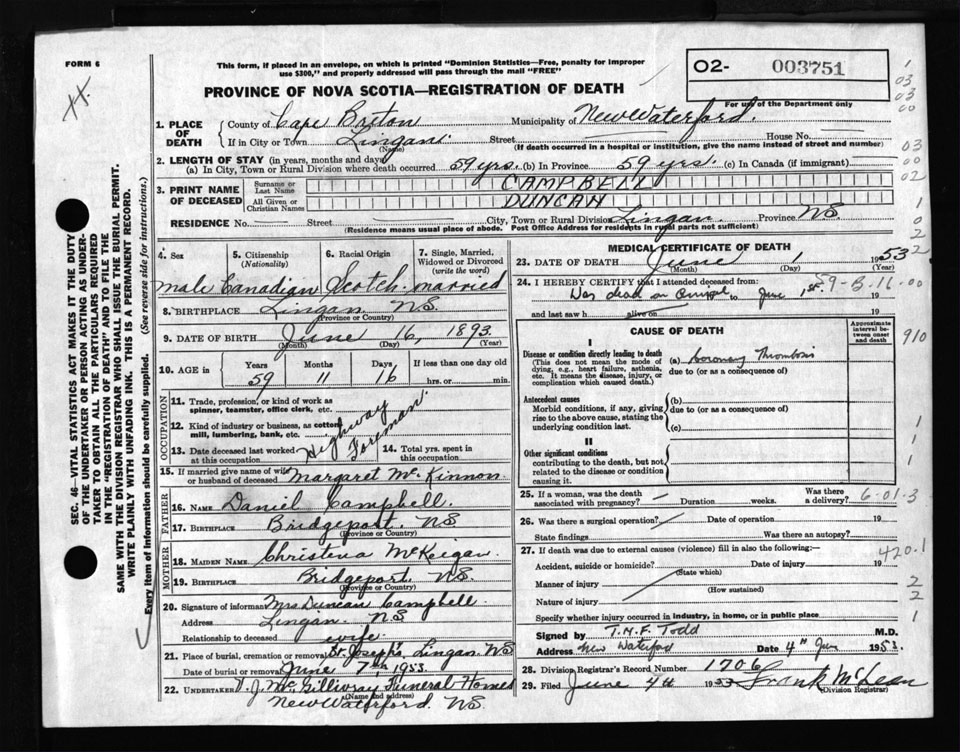 FORM 6
This form, if placed in an envelope, on which is printed "Dominion Statistics—Free, penalty for improper
use $300," and properly addressed will pass through the mail "FREE"
PROVINCE OF NOVA SCOTIA—REGISTRATION OF DEATH
O2- 003751
For use of the Department only
1. PLACE OF DEATH
County of Cape Breton Municipality of New Waterford.
If in City or Town Lingan. Street House No.
(Name) (If death occurred in a hospital or institution, give the name instead of street and number)
2. LENGTH OF STAY (in years, months and days)
(a) In City, Town or Rural Division where death occurred 59 yrs. (b) In Province 59 yrs. (c) In Canada (if immigrant)
3. PRINT NAME OF DECEASED
Surname or Last Name CAMPBELL
All Given or Christian Names DUNCAN
RESIDENCE No. Street City, Town or Rural Division Lingan. Province NS
(Residence means usual place of abode. Post Office Address for residents in rural parts not sufficient)
4. Sex
5. Citizenship (Nationality)
6. Racial Origin
7. Single, Married, Widowed or Divorced (write the word)
male Canadian Scotch married
8. BIRTHPLACE Lingan NS
(Province or Country)
9. DATE OF BIRTH June 16, 1893.
(Month) (Day) (Year)
10. AGE in Years Months Days If less than one day old
59 11 16 hrs. or min.
OCCUPATION
11. Trade, profession, or kind of work as
spinner, teamster, office clerk, etc.
12. Kind of industry or business, as cotton
mill, lumbering, bank, etc.
Highway Foreman.
13. Date deceased last worked
at this occupation
14. Total yrs. spent in
this occupation
15. If married give name of wife
or husband of deceased Margaret McKinnon
FATHER
16. Name Daniel Campbell.
17. Birthplace Bridgeport. NS
(Province or Country)
MOTHER
18. MAIDEN NAME Christena McKeigan
19. BIRTHPLACE Bridgeport NS.
(Province or Country)
20. Signature of informant Mrs Duncan Campbell.
Address Lingan. NS
Relationship to deceased wife
21. Place of burial, cremation or removal St. Joseph's, Lingan. NS
Date of burial or removal June 7th 1953.
22. UNDERTAKER J. McGillivray Funeral Homes
(Name and address)
New Waterford. NS.
MEDICAL CERTIFICATE OF DEATH
23. DATE OF DEATH June 1 1953
(Month) (Day) (Year)
24. I HEREBY CERTIFY that I attended deceased from:
Was dead on to June 1st 19
and last saw h alive on 19
CAUSE OF DEATH
Approximate interval between onset and death
I
Disease or condition directly leading to death (a) Coronary Thrombosis
(This does not mean the mode of due to (or as a consequence of)
dying, e.g., heart failure, asthenia,
etc. It means the disease, injury, or
complication which caused death.)
Antecedent causes (b)
Morbid conditions, if any, giving due to (or as a consequence of)
rise to the above cause, stating the
underlying condition last. (c)
II
Other significant conditions
contributing to the death, but not
related to the disease or condition
causing it.
25. If a woman, was the death
associated with pregnancy? Duration weeks. Was there a delivery?
26. Was there a surgical operation? Date of operation 19
State findings Was there an autopsy?
27. If death was due to external causes (violence) fill in also the following:—
Accident, suicide or homicide? Date of injury 19
(State which)
Manner of injury
(How sustained)
Nature of injury
Specify whether injury occurred in industry, in home, or in public place
Signed by T.H.F. Todd M.D.
Address New Waterford Date 4th June 1953.
28. Division Registrar's Record Number 1706
29. Filed June 4th 1953 Frank McLean
(Division Registrar)
SEC. 46—VITAL STATISTICS ACT MAKES IT THE DUTY
OF THE UNDERTAKER OR PERSON ACTING AS UNDER-
TAKER TO OBTAIN ALL THE PARTICULARS REQUIRED
IN THE "REGISTRATION OF DEATH" AND TO FILE THE
SAME WITH THE DIVISION REGISTRAR WHO SHALL ISSUE THE BURIAL PERMIT.
WRITE PLAINLY WITH UNFADING INK. THIS IS A PERMANENT RECORD.
Every item of information should be carefully supplied. (See reverse side for instructions.)
1
03
03
00
03
00
02
1
0
2
2
9-B.16-00
910
1
1
6-01-3
420.1
2
2
1